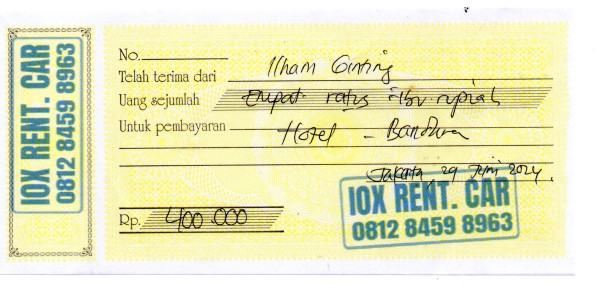 IOX RENT. CAR
0812 8459 8963
No.
Telah terima dari Ilham Ginting
Uang sejumlah Empat ratus ribu rupiah
Untuk pembayaran Hotel - Bandara
Jakarta, 29 Juni 2024
Rp. 400.000
IOX RENT. CAR
0812 8459 8963